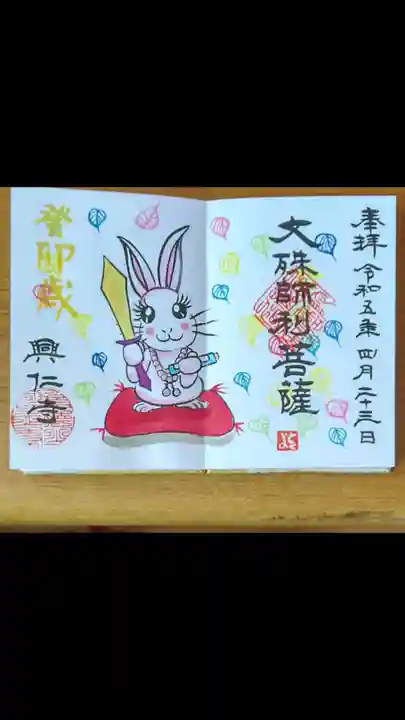 奉拝 令和五年 四月二十三日
文殊師利菩薩
癸卯歳
興仁寺